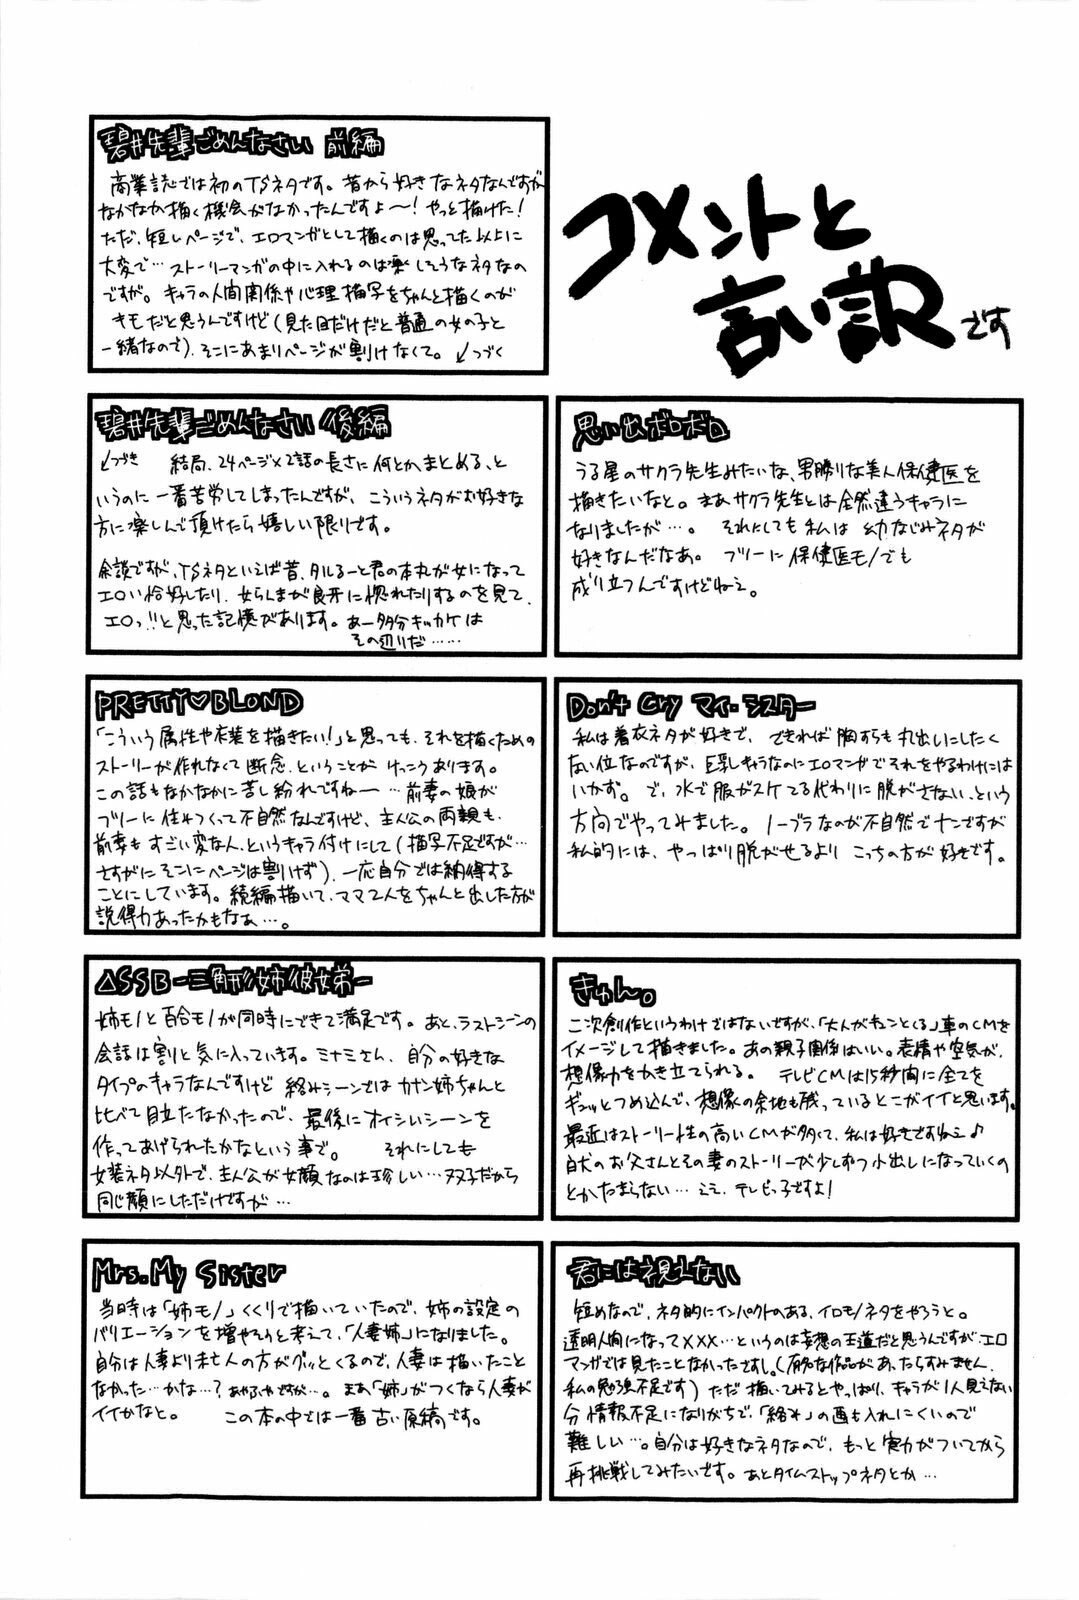 コメントと
言い訳です
碧井先輩ごめんなさい 前編
商業誌では初のTSネタです。昔から好きなネタなんですが
なかなか描く機会がなかったんですよ〜!やっと描けた!
ただ、短いページで、エロマンガとして描くのは思ってた以上に
大変で…ストーリーマンガの中に入れるのは楽しそうなネタなの
ですが。キャラの人間関係や心理描写をちゃんと描くのが
キモだと思うんですけど(見た目だけだと普通の女の子と
一緒なので)、そこにあまりページが割けなくて。↙つづく
碧井先輩ごめんなさい 後編
↙つづき 結局、24ページ×2話の長さに何とかまとめる、と
いうのに一番苦労してしまったんですが、こういうネタがお好きな
方に楽しんで頂けたら嬉しい限りです。
余談ですが、TSネタといえば昔、タルるート君の本丸が女になって
エロい恰好したり、女らんまが良牙に惚れたりするのを見て、
エロっ!!と思った記憶があります。あー多分キッカケは
その辺りだ……
思い出ボロボロ
うる星のサクラ先生みたいな、男勝りな美人保健医を
描きたいなと。まあサクラ先生とは全然違うキャラに
なりましたが…。それにしても私は幼なじみネタが
好きなんだなあ。フツーに保健医モノでも
成り立つんですけどねえ。
PRETTY♡BLOND
「こういう属性や衣装を描きたい!」と思っても、それを描くための
ストーリーが作れなくて断念、ということがけっこうあります。
この話もなかなかに苦し紛れですね〜…前妻の娘が
フツーに住みつくって不自然なんですけど、主人公の両親も、
前妻もすごい変な人、というキャラ付けにして(描写不足ですが…
さすがにそこにページは割けず)、一応自分では納得する
ことにしています。続編描いて、ママ2人をちゃんと出した方が
説得力あったかもなぁ…。
Don't Cry マイ・シスター
私は着衣ネタが好きで、できれば胸すらも丸出しにしたく
ない位なのですが、巨乳キャラなのにエロマンガでそれをやるわけには
いかず。で、水で服がスケてる代わりに脱がさない、という
方向でやってみました。ノーブラなのが不自然でナンですが
私的には、やっぱり脱がせるよりこっちの方が好きです。
△SSB-三角形姉彼女弟-
姉モノと百合モノが同時にできて満足です。あと、ラストシーンの
会話は割と気に入っています。ミナミさん、自分の好きな
タイプのキャラなんですけど絡みシーンではカナン姉ちゃんと
比べて目立たなかったので、最後にオイシいシーンを
作ってあげられたかなという事で。 それにしても
女装ネタ以外で、主人公が女顔なのは珍しい…双子だから
同じ顔にしただけですが…
きゅん。
二次創作というわけではないですが、「大人がキュンとくる」車のCMを
イメージして描きました。あの親子関係はいい。表情や空気が、
想像力をかき立てられる。 テレビCMは15秒間に全てを
ギュッとつめ込んで、想像の余地も残っているとこがイイと思います。
最近はストーリー性の高いCMが多くて、私は好きですねえ♪
白犬のお父さんとその妻のストーリーが少しずつ小出しになっていくの
とかたまらない…ええ、テレビっ子ですよ!
Mrs. My Sister
当時は「姉モノ」くくりで描いていたので、姉の設定の
バリエーションを増やそうと考えて、「人妻姉」になりました。
自分は人妻より未亡人の方がグッとくるので、人妻は描いたこと
なかった…かな…?あやふやですが…。まあ「姉」がつくなら人妻が
イイかなと。 この本の中では一番古い原稿です。
君には視えない
短めなので、ネタ的にインパクトのある、イロモノネタをやろうと。
透明人間になって×××…というのは妄想の王道だと思うんですが、エロ
マンガでは見たことなかったですし。(有名な作品があったらすみません、
私の勉強不足です)ただ描いてみるとやっぱり、キャラが1人見えない
分情報不足になりがちで、「絡み」の画も入れにくいので
難しい…。自分は好きなネタなので、もっと実力がついてから
再挑戦してみたいです。あとタイムストップネタとか…